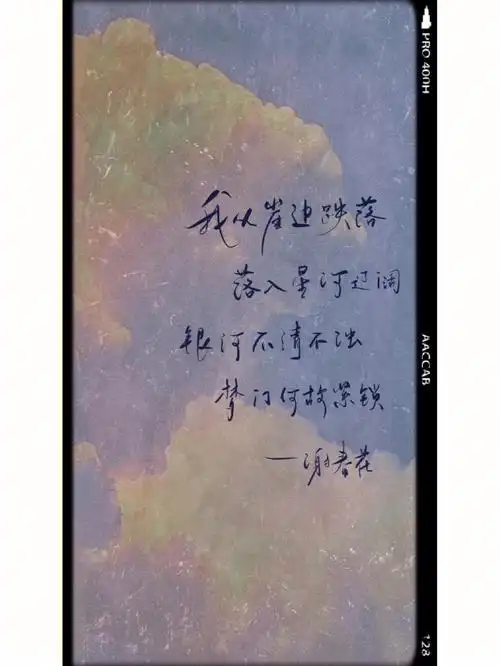 我从崖边跌落
落入星河辽阔
银河不清不浊
梦门何故紧锁
—谢春花
PRO 400H
AACCAB
128